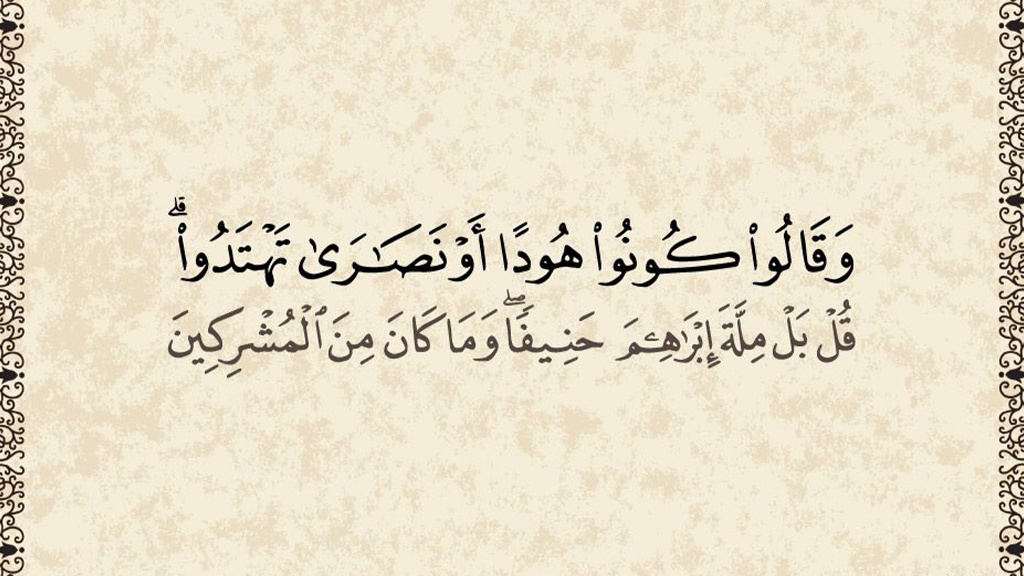 وَقَالُوا۟ كُونُوا۟ هُودًا أَوْ نَصَـٰرَىٰ تَهْتَدُوا۟ ۗ
قُلْ بَلْ مِلَّةَ إِبْرَٰهِـۧمَ حَنِيفًا ۖ وَمَا كَانَ مِنَ ٱلْمُشْرِكِينَ